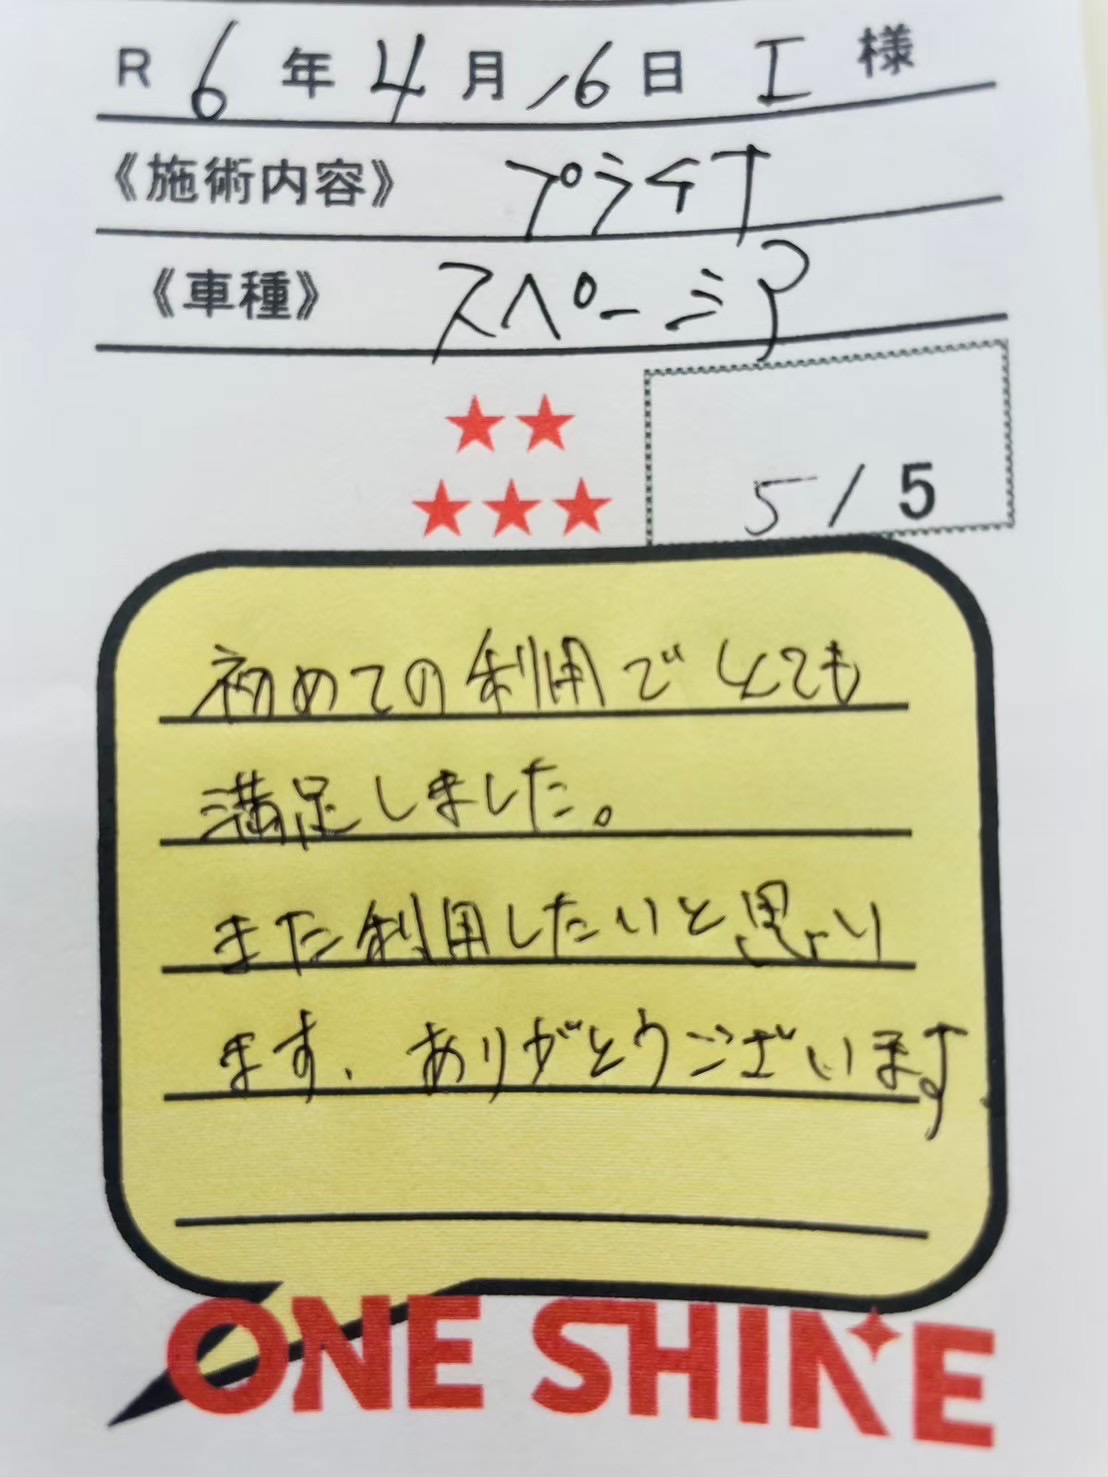 R 6年4月16日 I 様
《施術内容》 プラチナ
《車種》 スペーシア
5/5
初めての利用でとても
満足しました。
また利用したいと思い
ます、ありがとうございます。
ONE SHINE